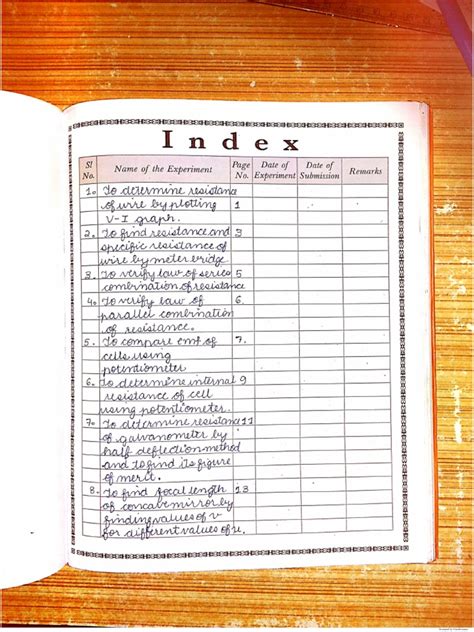 Index
Sl No. Name of the Experiment Page No. Date of Experiment Date of Submission Remarks
1. To determine resistanc
of wire by plotting 1
V-I graph.
2. To find resistance and 3
specific resistance of
wire by meter bridge
3. To verify law of series 5
combination of resistance
4. To verify law of
parallel combination
of resistance.
5. To compare emf of 7.
cells using
potentiometer
6. To determine internal 9
resistance of cell
using potentiometer.
7. To determine resistanc 11
of galvanometer by
half deflection method
and to find its figure
of merit.
8. To find focal length 13
of concave mirror by
finding values of v
for different values of u.